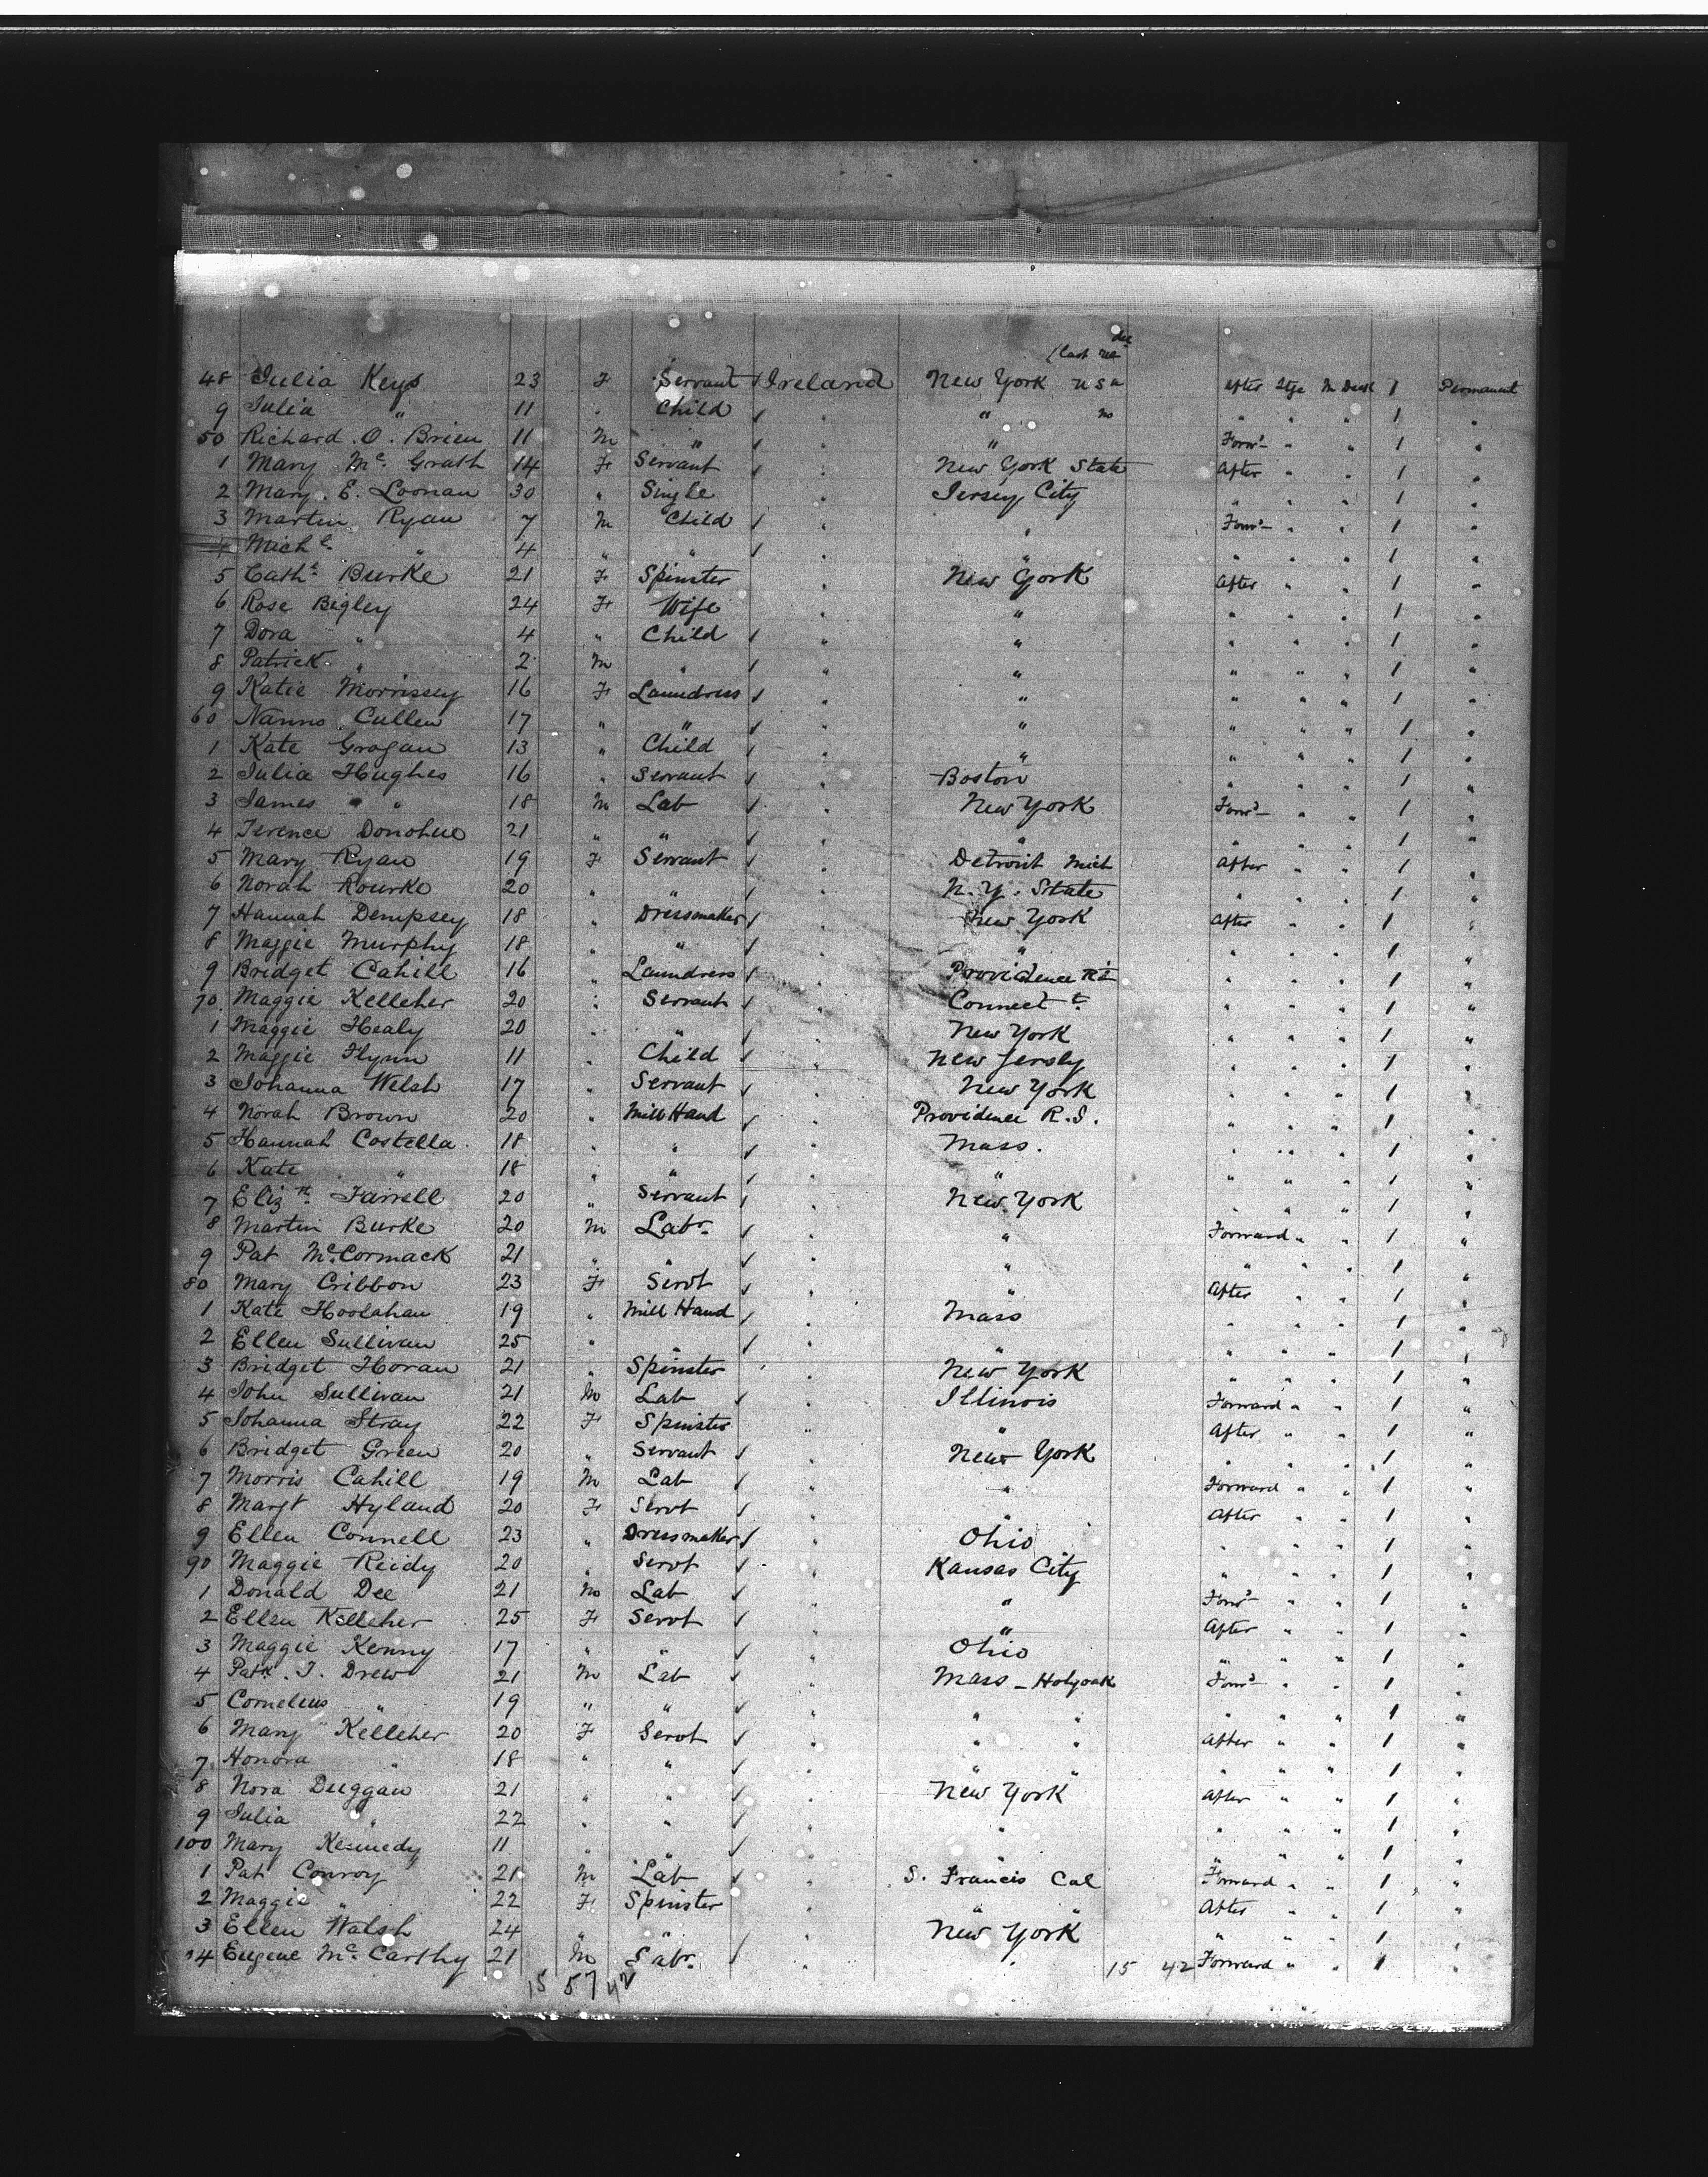 (Last
48 Julia Keys 23 F Servant Ireland New York USA After Stge M Deck 1 Permanent
9 Julia " 11 " Child " " no " " " 1 "
50 Richard O. Brien 11 M " " " Forwd " " 1 "
1 Mary Mc Grath 14 F Servant " New York State After " " 1 "
2 Mary E. Loonan 30 " Single " Jersey City " " " 1 "
3 Martin Ryan 7 M Child " " Forwd " " 1 "
4 Michl " 4 " " " " " " " 1 "
5 Cathe Burke 21 F Spinster " New York After " " 1 "
6 Rose Bigley 24 F Wife " " " " " 1 "
7 Dora " 4 " Child " " " " " 1 "
8 Patrick " 2 M " " " " " " 1 "
9 Katie Morrissey 16 F Laundress " " " " " 1 "
60 Nanno Cullen 17 " " " " " " " 1 "
1 Kate Grogan 13 " Child " " " " " 1 "
2 Julia Hughes 16 " Servant " Boston " " " 1 "
3 James " 18 M Lab " New York Forwd " " 1 "
4 Terence Donohue 21 " " " " " " " 1 "
5 Mary Ryan 19 F Servant " Detroit Mich After " " 1 "
6 Norah Rourke 20 " " " N.Y. State " " " 1 "
7 Hannah Dempsey 18 " Dressmaker " New York After " " 1 "
8 Maggie Murphy 18 " " " " " " " 1 "
9 Bridget Cahill 16 " Laundress " Providence RI " " " 1 "
70 Maggie Kelleher 20 " Servant " Connectt " " " 1 "
1 Maggie Healy 20 " " " New York " " " 1 "
2 Maggie Flynn 11 " Child " New Jersey " " " 1 "
3 Johanna Welsh 17 " Servant " New York " " " 1 "
4 Norah Brown 20 " Mill Hand " Providence R.I. " " " 1 "
5 Hannah Costella 18 " " " Mass. " " " 1 "
6 Kate " 18 " " " " " " " 1 "
7 Elizth Farrell 20 " Servant " New York " " " 1 "
8 Martin Burke 20 M Labr " " Forward " " 1 "
9 Pat McCormack 21 " " " " " " " 1 "
80 Mary Cribbon 23 F Servt " " After " " 1 "
1 Kate Hoolahan 19 " Mill Hand " Mass " " " 1 "
2 Ellen Sullivan 25 " " " " " " " 1 "
3 Bridget Horan 21 " Spinster " New York " " " 1 "
4 John Sullivan 21 M Lab " Illinois Forward " " 1 "
5 Johanna Stray 22 F Spinster " " After " " 1 "
6 Bridget Green 20 " Servant " New York " " " 1 "
7 Morris Cahill 19 M Lab " " Forward " " 1 "
8 Margt Hyland 20 F Servt " " After " " 1 "
9 Ellen Connell 23 " Dressmaker " Ohio " " " 1 "
90 Maggie Reidy 20 " Servt " Kansas City " " " 1 "
1 Donald Dee 21 M Lab " " Forwd " " 1 "
2 Ellen Kelleher 25 F Servt " " After " " 1 "
3 Maggie Kenny 17 " " " Ohio " " " 1 "
4 Patk. J. Drew 21 M Lab " Mass - Holyoak Forwd " " 1 "
5 Cornelius " 19 " " " " " " " " 1 "
6 Mary Kelleher 20 F Servt " " " After " " 1 "
7 Honora " 18 " " " " " " " " 1 "
8 Nora Duggan 21 " " " New York After " " 1 "
9 Julia " 22 " " " " " " " 1 "
100 Mary Kennedy 11 " " " " " " " 1 "
1 Pat Conroy 21 M Lab " S. Francis Cal Forward " " 1 "
2 Maggie " 22 F Spinster " " " After " " 1 "
3 Ellen Walsh 24 " " " New York " " " 1 "
4 Eugene Mc Carthy 21 M Labr " " Forward " " 1 "
15 57 42 15 42